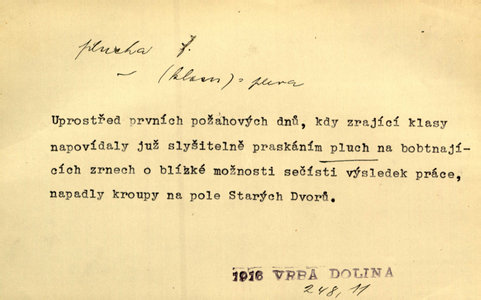 plucha f.
~ (klasu) = pleva
Uprostřed prvních požahových dnů, kdy zrající klasy
napovídaly již slyšitelně praskáním pluch na bobtnají-
cích zrnech o blízké možnosti sečísti výsledek práce,
napadly kroupy na pole Starých Dvorů.
1916 VRBA DOLINA
248, 11